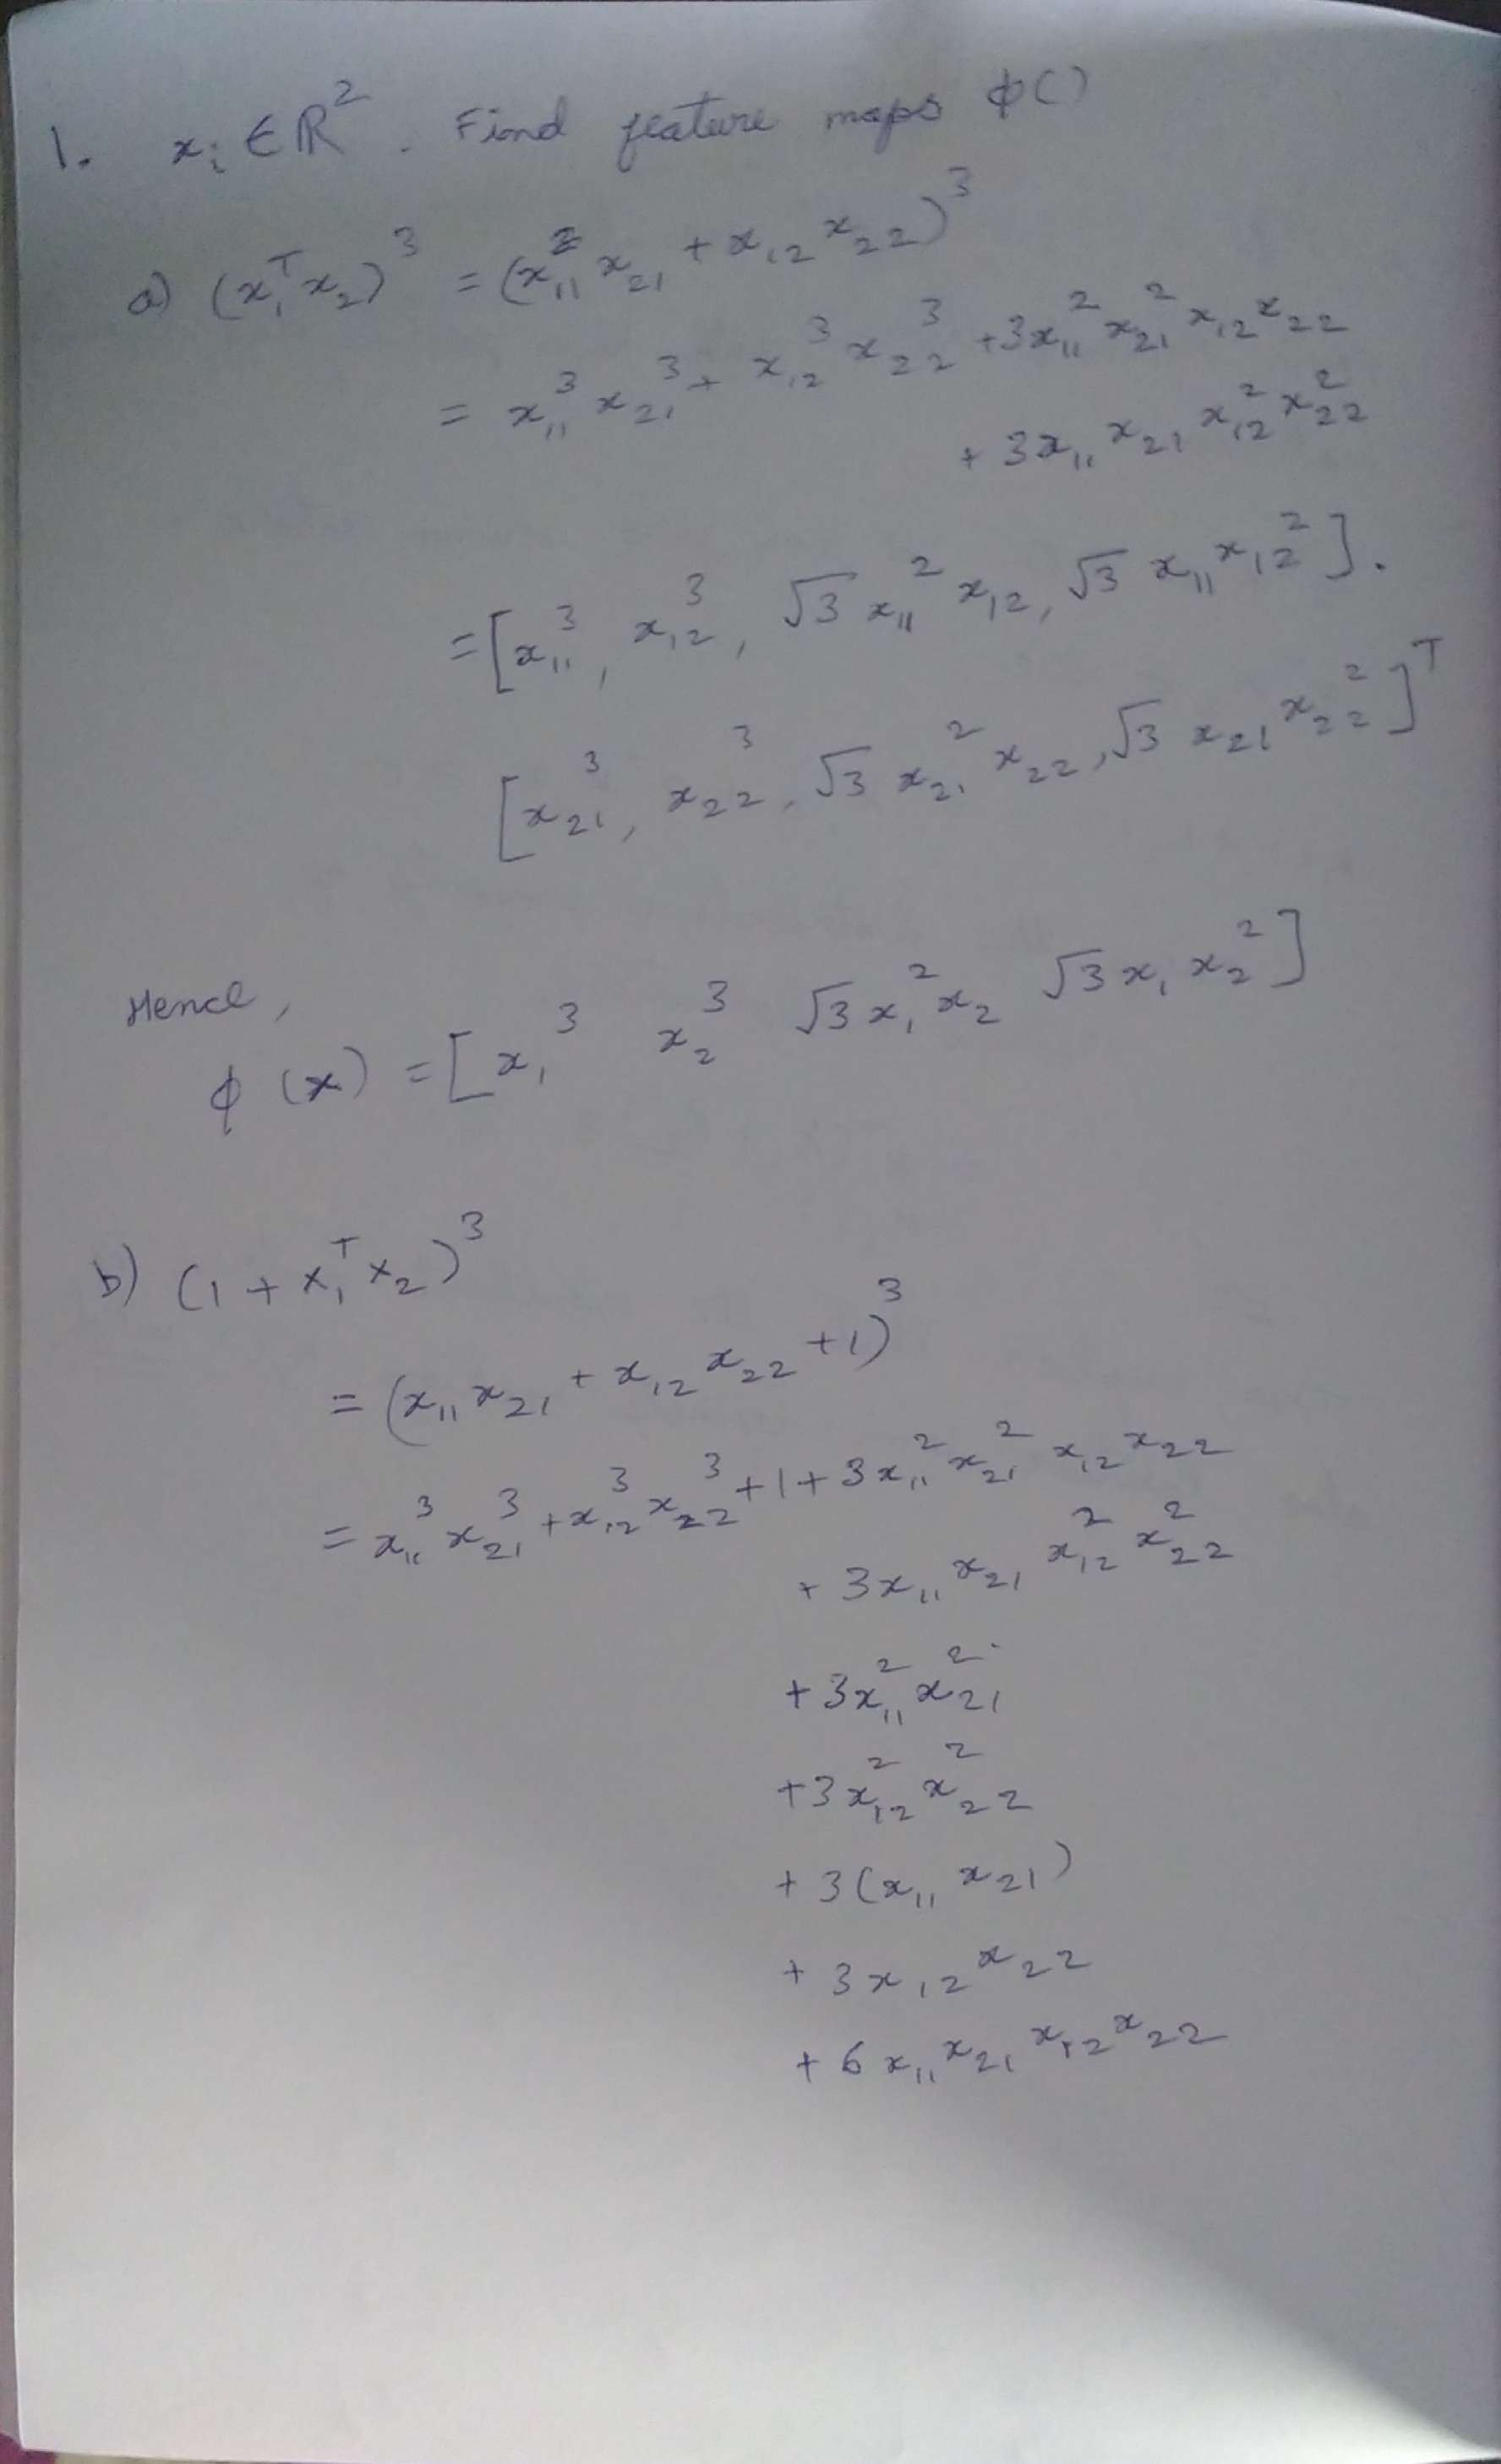 1. xᵢ ∈ ℝ² . Find feature maps ϕ()
a) (x₁ᵀx₂)³ = (x₁₁x₂₁ + x₁₂x₂₂)³
= x₁₁³x₂₁³ + x₁₂³x₂₂³ + 3x₁₁²x₂₁²x₁₂x₂₂
+ 3x₁₁x₂₁x₁₂²x₂₂²
= [x₁₁³, x₁₂³, √3 x₁₁²x₁₂, √3 x₁₁x₁₂²].
[x₂₁³, x₂₂³, √3 x₂₁²x₂₂, √3 x₂₁x₂₂²]ᵀ
Hence,
ϕ(x) = [x₁³ x₂³ √3x₁²x₂ √3x₁x₂²]
b) (1 + x₁ᵀx₂)³
= (x₁₁x₂₁ + x₁₂x₂₂ + 1)³
= x₁₁³x₂₁³ + x₁₂³x₂₂³ + 1 + 3x₁₁²x₂₁²x₁₂x₂₂
+ 3x₁₁x₂₁x₁₂²x₂₂²
+ 3x₁₁²x₂₁²
+ 3x₁₂²x₂₂²
+ 3(x₁₁x₂₁)
+ 3x₁₂x₂₂
+ 6x₁₁x₂₁x₁₂x₂₂